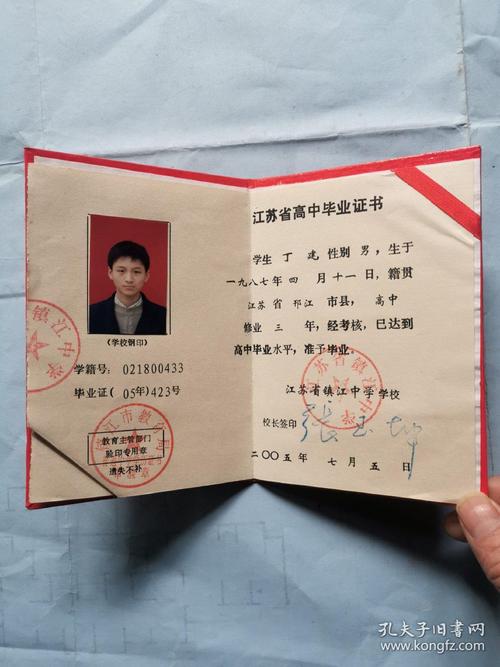 （学校钢印）
学籍号：021800433
毕业证（05年）423号
镇江中学
教育主管部门
验印专用章
遗失不补
江苏省高中毕业证书
学生 丁 建，性别 男，生于
一九八七年 四 月 十一 日，籍贯
江苏 省 邗江 市县， 高中
修业 三 年，经考核，已达到
高中毕业水平，准予毕业。
江苏省镇江中学 学校
江苏省镇江中学
校长签印
二〇〇五年 七 月 五 日
孔夫子旧书网
www.kongfz.com